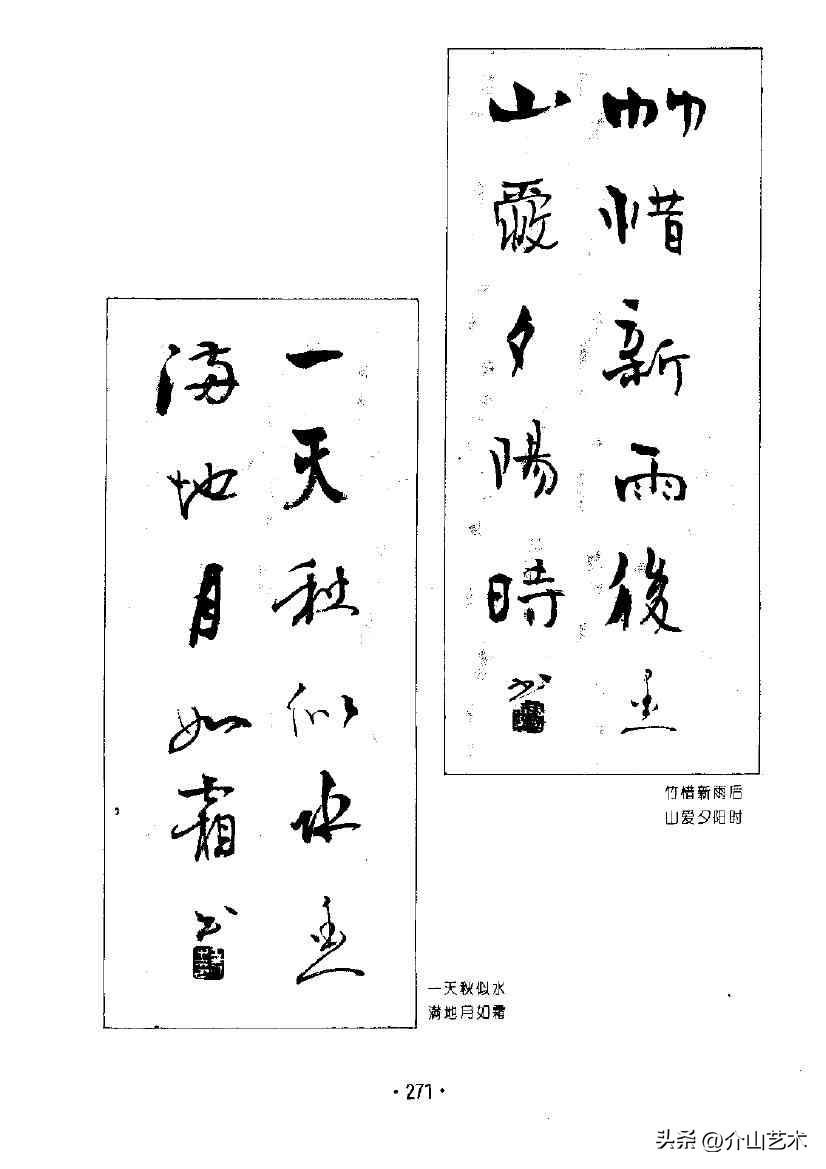 竹惜新雨後
山愛夕陽時
书
竹惜新雨后
山爱夕阳时
一天秋似水
滿地月如霜
书
一天秋似水
满地月如霜
·271·
头条 @介山艺术